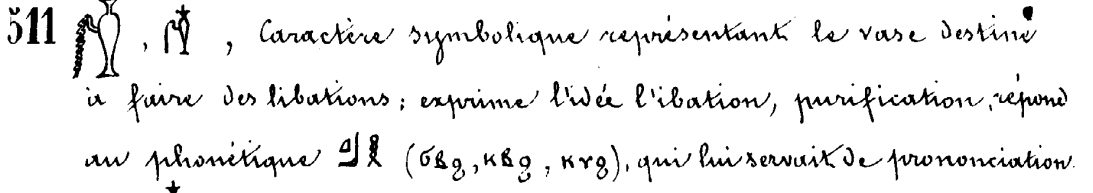 511 , , Caractère symbolique représentant le vase destiné
à faire des libations ; exprime l'idée l'ibation, purification, répond
au phonétique (ϭⲃϩ, ⲕⲃϩ, ⲕⲩϩ), qui lui servait de prononciation.